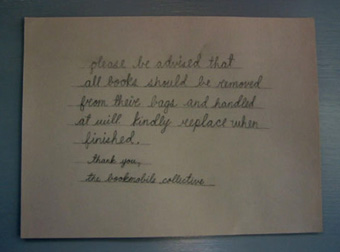 please be advised that
all books should be removed
from their bags and handled
at will. kindly replace when
finished.
thank you,
the bookmobile collective